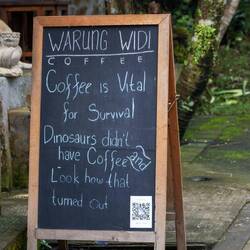 WARUNG WIDI
COFFEE
Coffee is Vital
for Survival
Dinosaurs didn't
have Coffee and
Look how that
turned out